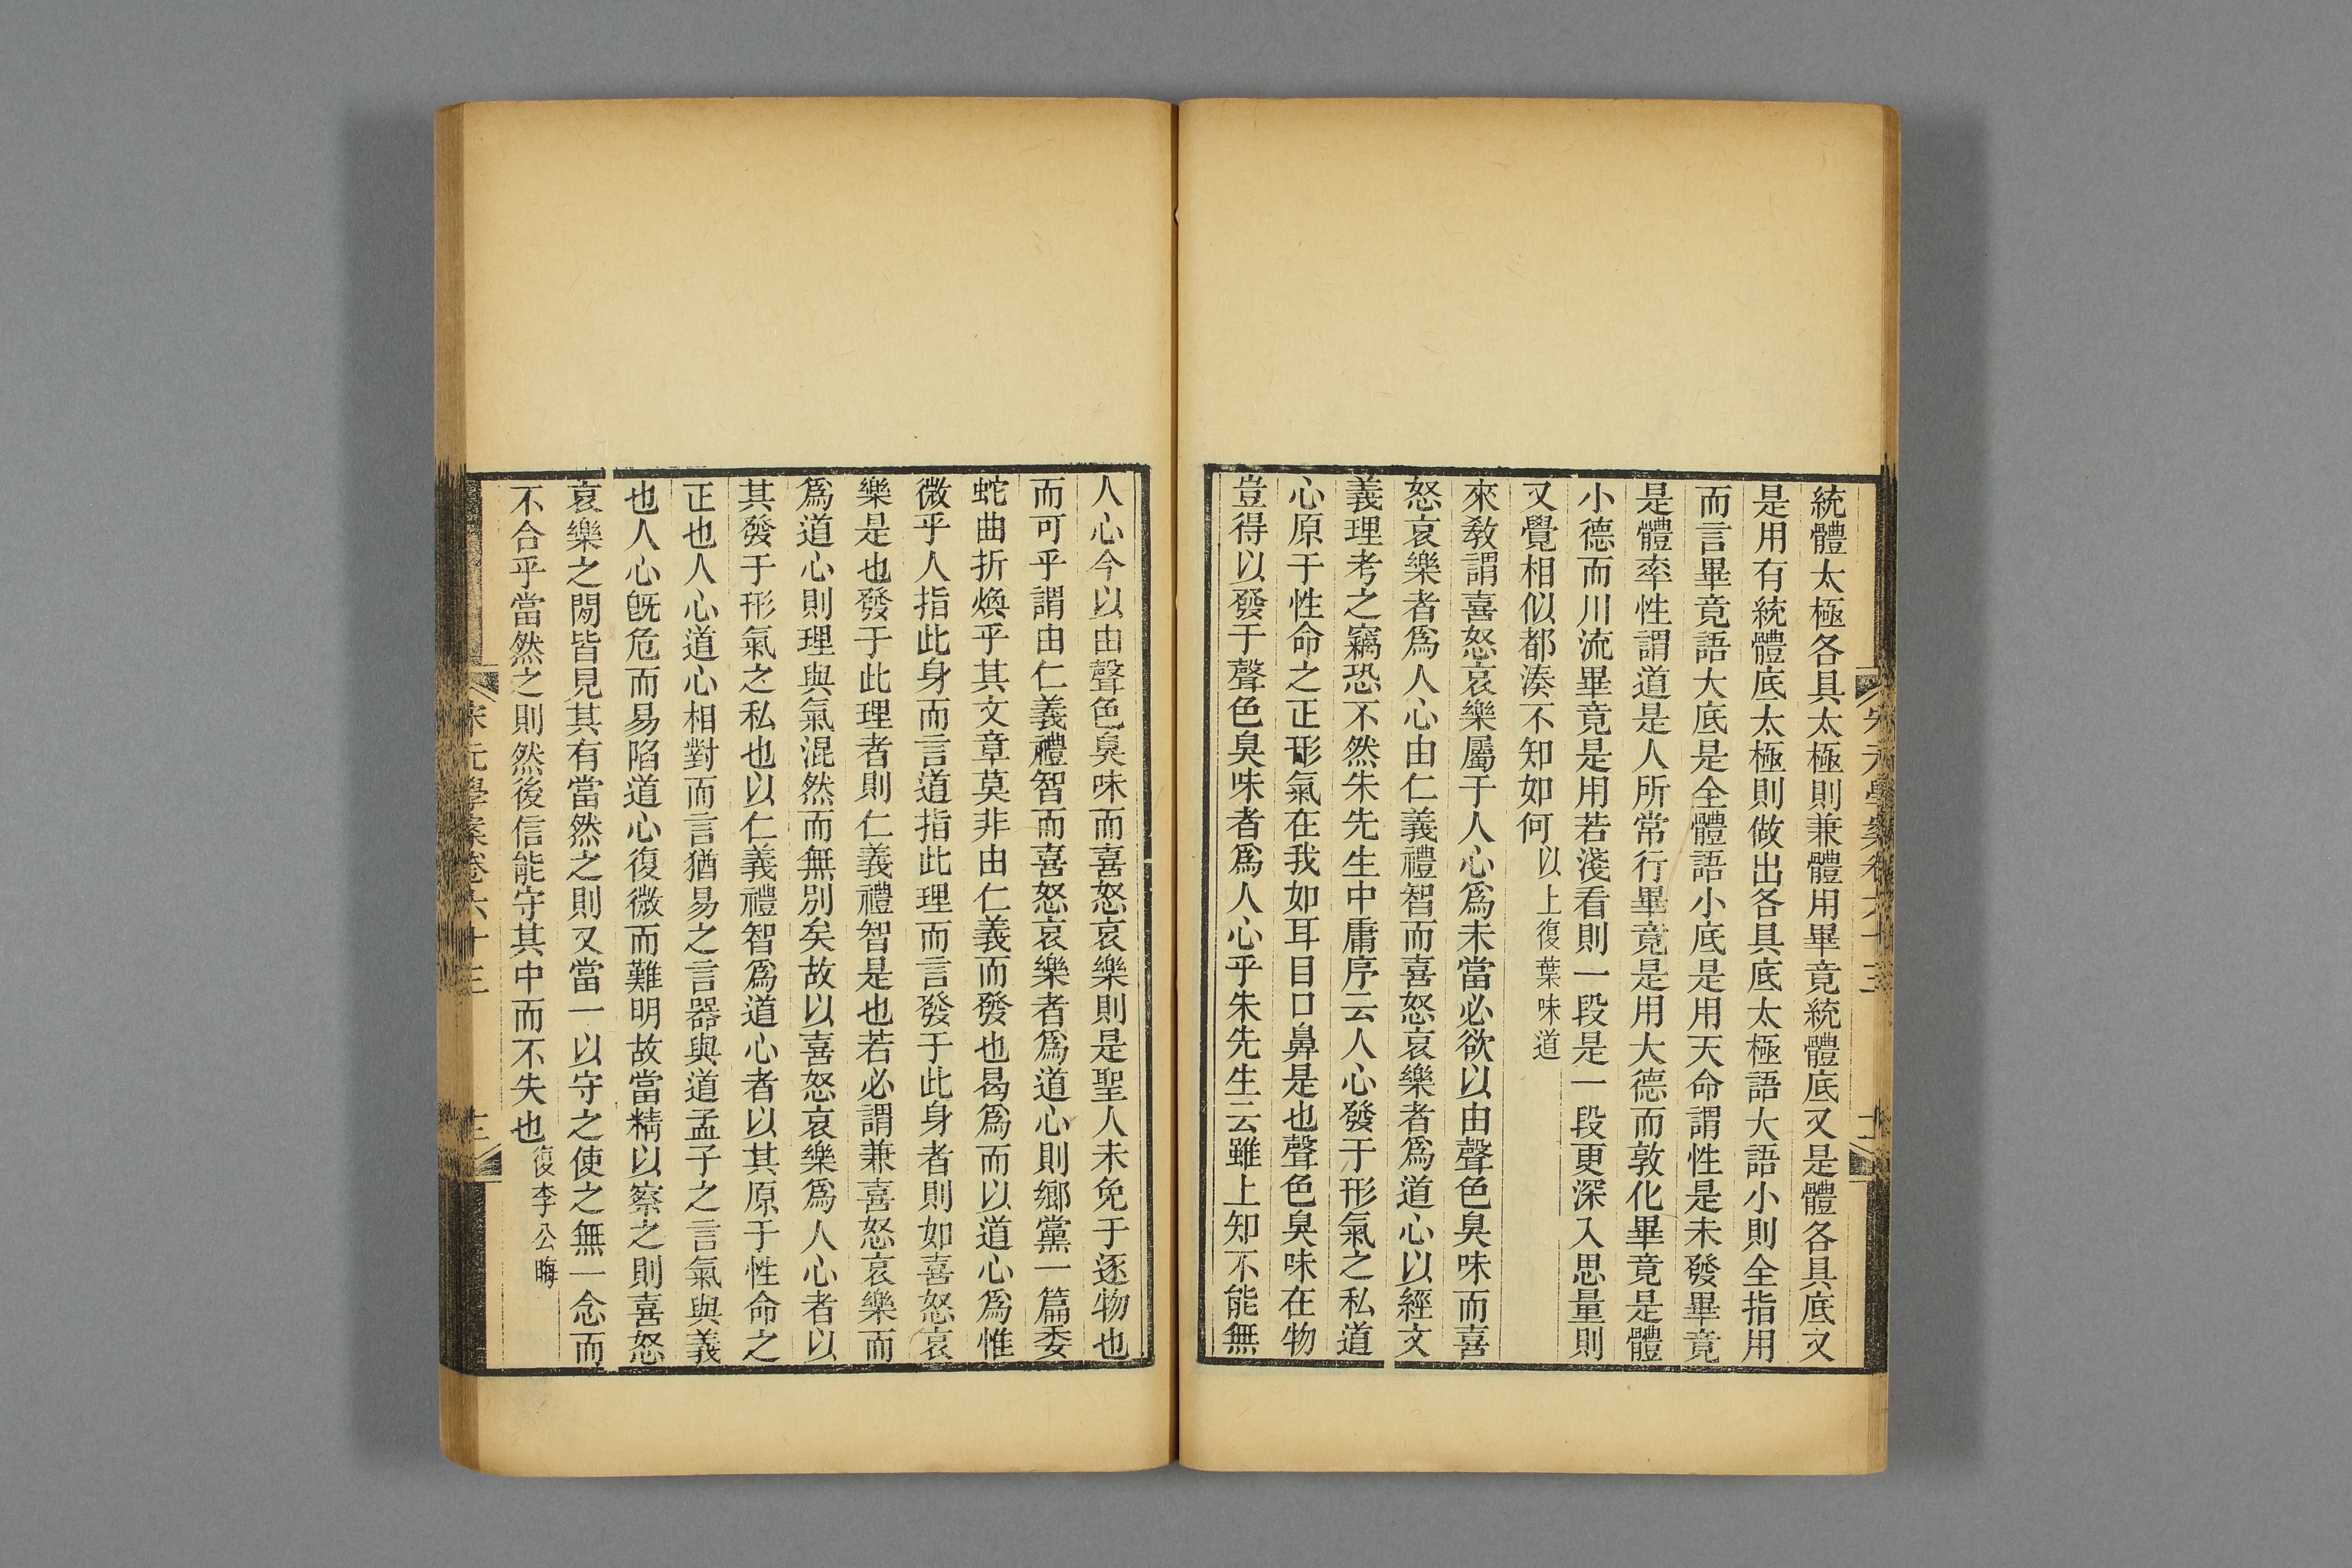 統體太極各具太極則兼體用畢竟統體底又是體各具底又
是用有統體底太極則做出各具底太極語大語小則全指用
而言畢竟語大底是全體語小底是用天命謂性是未發畢竟
是體率性謂道是人所常行畢竟是用大德而敦化畢竟是體
小德而川流畢竟是用若淺看則一段是一段更深入思量則
又覺相似都湊不知如何以上復葉味道
來敎謂喜怒哀樂屬于人心爲未當必欲以由聲色臭味而喜
怒哀樂者爲人心由仁義禮智而喜怒哀樂者爲道心以經文
義理考之竊恐不然朱先生中庸序云人心發于形氣之私道
心原于性命之正形氣在我如耳目口鼻是也聲色臭味在物
豈得以發于聲色臭味者爲人心乎朱先生云雖上知不能無
人心今以由聲色臭味而喜怒哀樂則是聖人未免于逐物也
而可乎謂由仁義禮智而喜怒哀樂者爲道心則鄉黨一篇委
蛇曲折煥乎其文章莫非由仁義而發也曷爲而以道心爲惟
微乎人指此身而言道指此理而言發于此身者則如喜怒哀
樂是也發于此理者則仁義禮智是也若必謂兼喜怒哀樂而
爲道心則理與氣混然而無別矣故以喜怒哀樂爲人心者以
其發于形氣之私也以仁義禮智爲道心者以其原于性命之
正也人心道心相對而言猶易之言器與道孟子之言氣與義
也人心旣危而易陷道心復微而難明故當精以察之則喜怒
哀樂之閒皆見其有當然之則又當一以守之使之無一念而
不合乎當然之則然後信能守其中而不失也復李公晦
宋元學案卷六十三